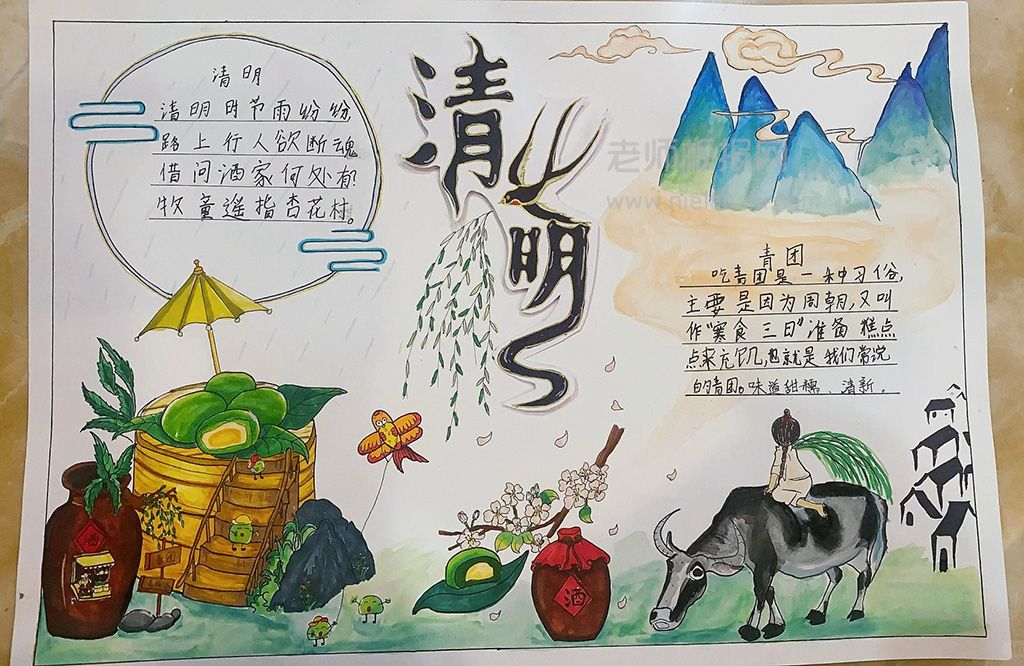 清明
清明时节雨纷纷,
路上行人欲断魂
借问酒家何处有
牧童遥指杏花村。
清明
老师板报网
青团
吃青团是一种习俗,
主要是因为周朝,又叫
作“寒食三日”准备糕点
点来充饥,也就是我们常说
的青团。味道甜糯、清新。
酒
酒